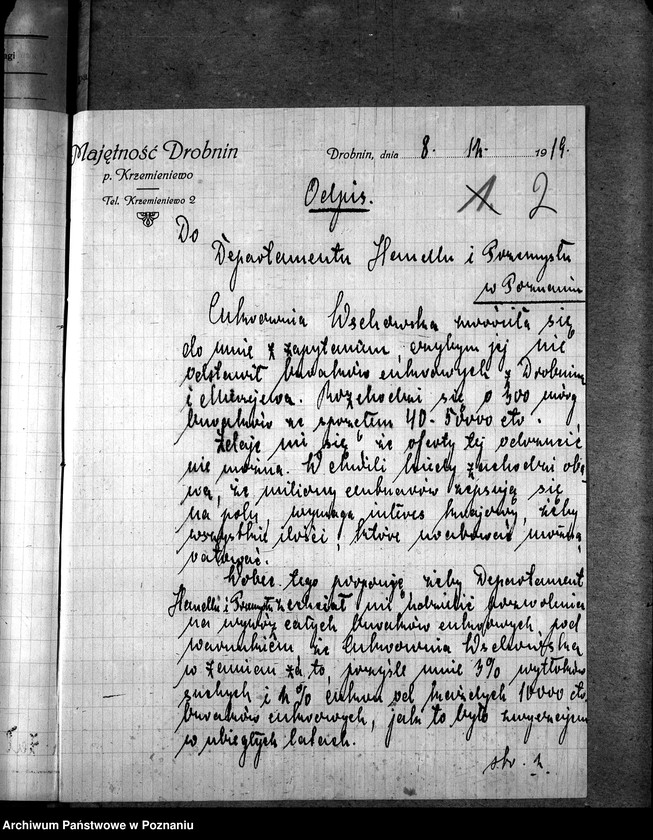 Majętność Drobnin
p. Krzemieniewo
Tel. Krzemieniewo 2
Drobnin, dnia 8. 12. 1919.
Odpis.
1. 2
Do
Departamentu Handlu i Przemysłu
w Poznaniu
Cukrownia Wschowska zwróciła się
do mnie z zapytaniem, czybym jej nie
odstawił buraków cukrowych z Drobnina
i Mierzejewa. Rozchodzi się o 300 mórg
buraków ze sprzętem 40-50000 ctr.
Zdaje mi się że oferty tej odrzucić
nie można. W chwili kiedy zachodzi oba
wa, że miliony centnarów zepsują się
na polu, wymaga interes krajowy, żeby
wszystkie ilości, które uratować można,
ratować.
Wobec tego proponuję żeby Departament
Handlu i Przemysłu zechciał mi udzielić pozwolenia
na wywóz całych buraków cukrowych pod
warunkiem że Cukrownia Wschowska
w zamian za to, przyśle mnie 3% wytłoków
suchych i 2% cukru od każdych 10000 ctr.
buraków cukrowych, jak to było zwyczajem
w ubiegłych latach.
str. 2.
Archiwum Państwowe w Poznaniu